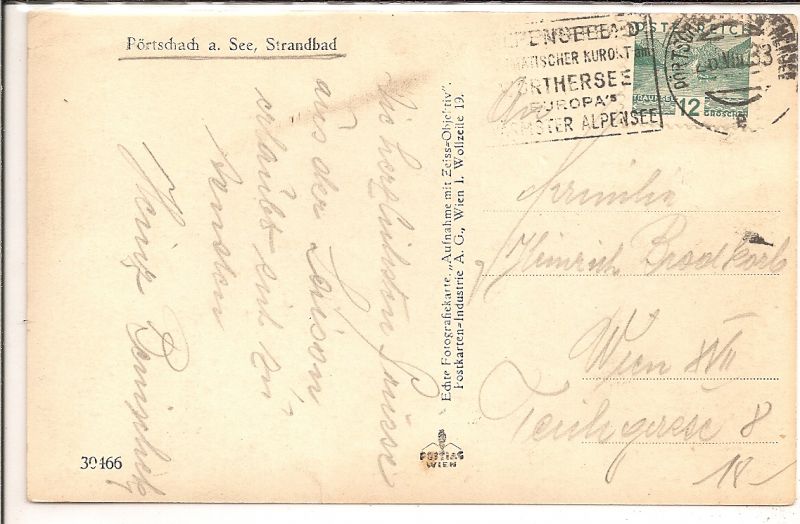 Pörtschach a. See, Strandbad
die herzlichsten Grüsse
aus der Saison
erlaubt sich zu
senden
Heinz
30466
Echte Fotografiekarte. „Aufnahme mit Zeiss=Objektiv“.
Postkarten=Industrie A. G., Wien I. Wollzeile 19.
POSTIAG
WIEN
KURORT am
WÖRTHERSEE
EUROPA'S
WÄRMSTER ALPENSEE
ÖSTERREICH
TRAUNSEE
12
GROSCHEN
PÖRTSCHACH
VIII 33
An
Familie
Heinrich Brodkorb
Wien XVII
Teichgasse 8